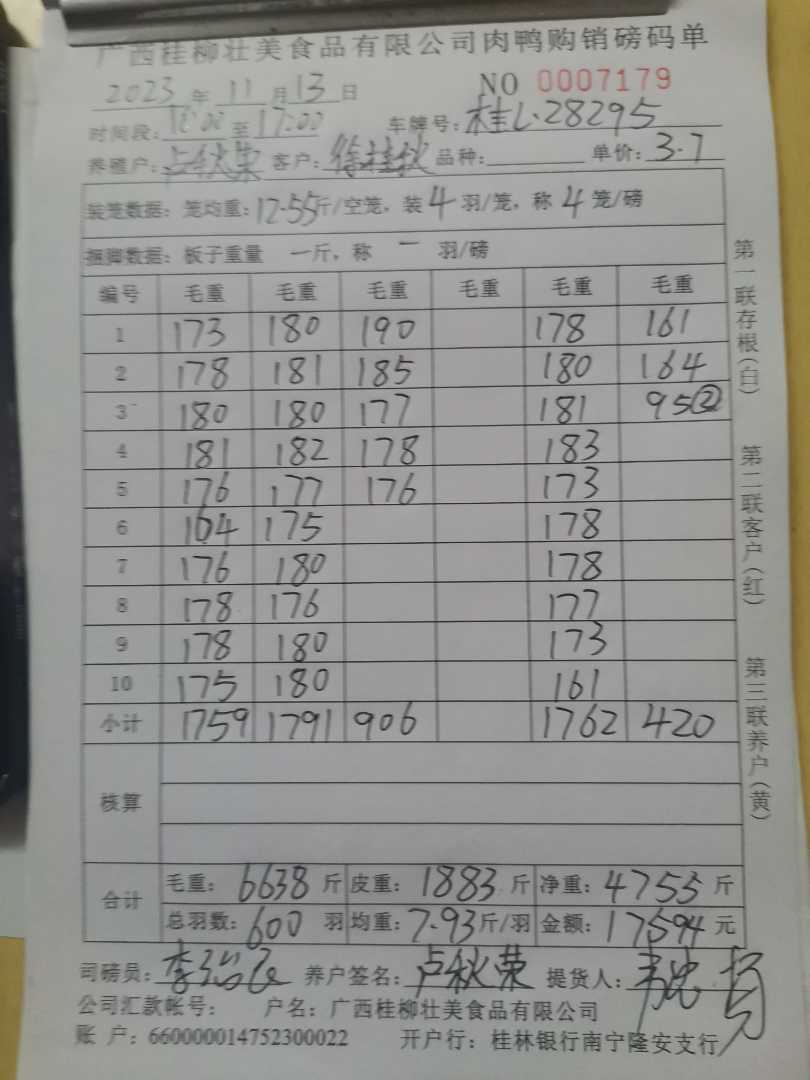 广西桂柳壮美食品有限公司肉鸭购销磅码单
2023年11月13日 NO 0007179
时间段: 至17:00 车牌号:桂L·28295
养殖户:卢秋荣 客户:徐桂秋 品种: 单价:3.7
装笼数据: 笼均重:12.55斤/空笼, 装4羽/笼, 称4笼/磅
捆脚数据: 板子重量 一斤, 称 一 羽/磅
编号 毛重 毛重 毛重 毛重 毛重 毛重
1 173 180 190 178 161
2 178 181 185 180 164
3 180 180 177 181 95②
4 181 182 178 183
5 176 177 176 173
6 164 175 178
7 176 180 178
8 178 176 177
9 178 180 173
10 175 180 161
小计 1759 1791 906 1762 420
核算
合计 毛重: 6638斤 皮重: 1883斤 净重: 4755斤
总羽数: 600羽 均重: 7.93斤/羽 金额: 17594元
司磅员: 养户签名:卢秋荣 提货人:
公司汇款帐号: 户名:广西桂柳壮美食品有限公司
账 户: 660000014752300022 开户行: 桂林银行南宁隆安支行
第一联存根(白) 第二联客户(红) 第三联养户(黄)